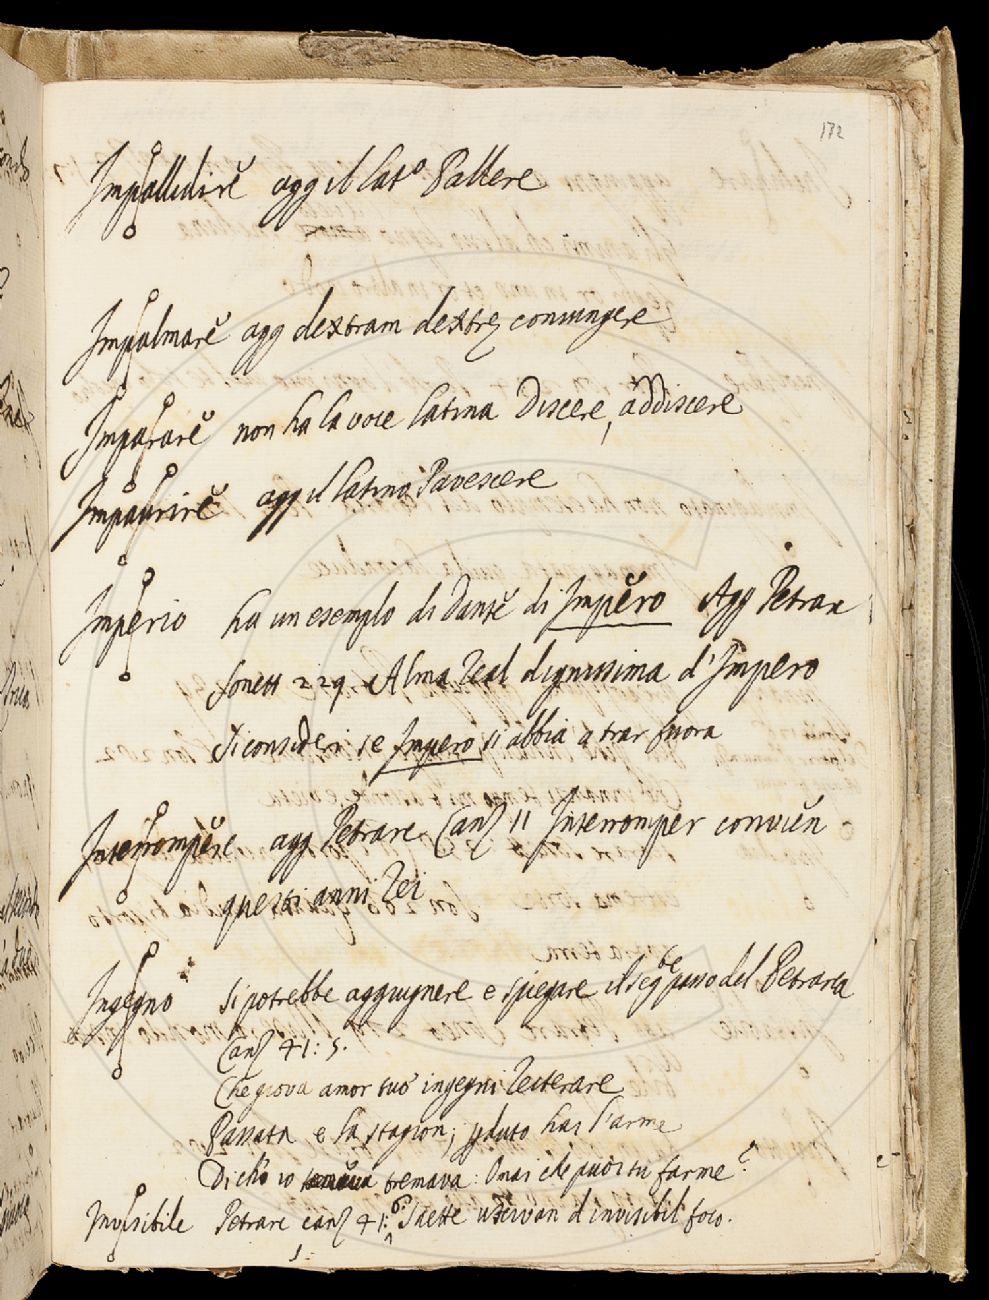 172
Impallidire agg il lat.º Pallere
Impalmare agg dextram dextrę coniungere
Imparare non ha la voce latina Discere, addiscere
Impaurire agg il latino Pavescere
Imperio ha un esempio di Dante di Impero Agg Petrar
Sonett 229. Alma real dignissima d'Impero
Si consideri se Impero si abbia a trar fuora
Interrompere agg Petrarc Canz 11 Interromper convien
questi anni rei
Ingegno si potrebbe aggiugnere e spiegare il segᵇᵉ passo del Petrarca
Canz 41: 5.
Che giova amor tuoi ingegni reiterare
Passata e la stagion; perduto hai l'arme
Di ch'io tremava: Omai che puoi tu farme?
Invisibile Petrarc canz 41: 6. Saette uscivan d'invisibil foco.